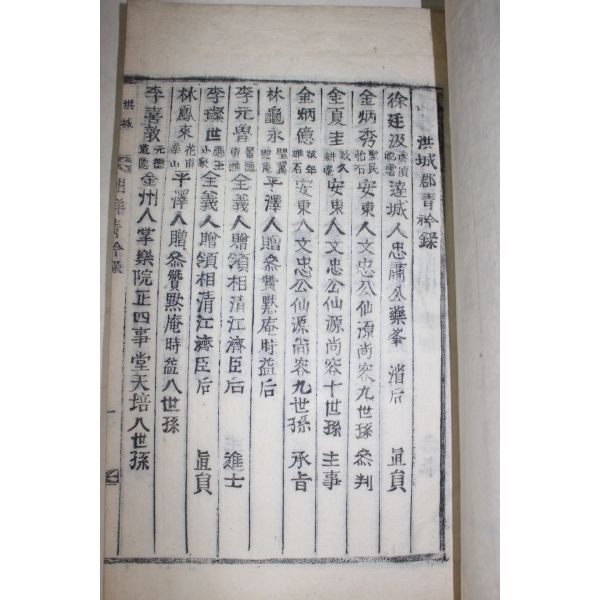 洪城郡靑衿錄
徐廷汲 達城人忠肅公藥峯 渻后 眞員
金炳秀 聖民 怡石 安東人文忠公仙源尙容九世孫 參判
金夏圭 致久 耕 安東人文忠公仙源尙容十世孫 主事
金炳億 安東人文忠公仙源尙容九世孫 承旨
林龜永 聖翼 平澤人贈參贊默庵時益后
李元曾 全義人贈領相淸江濟臣后 進士
李璨世 全義人贈領相淸江濟臣后 眞員
林鳳來 平澤人贈參贊默庵時益八世孫
李喜敦 金州人掌樂院正四事堂天培八世孫
洪城
朝鮮靑衿錄